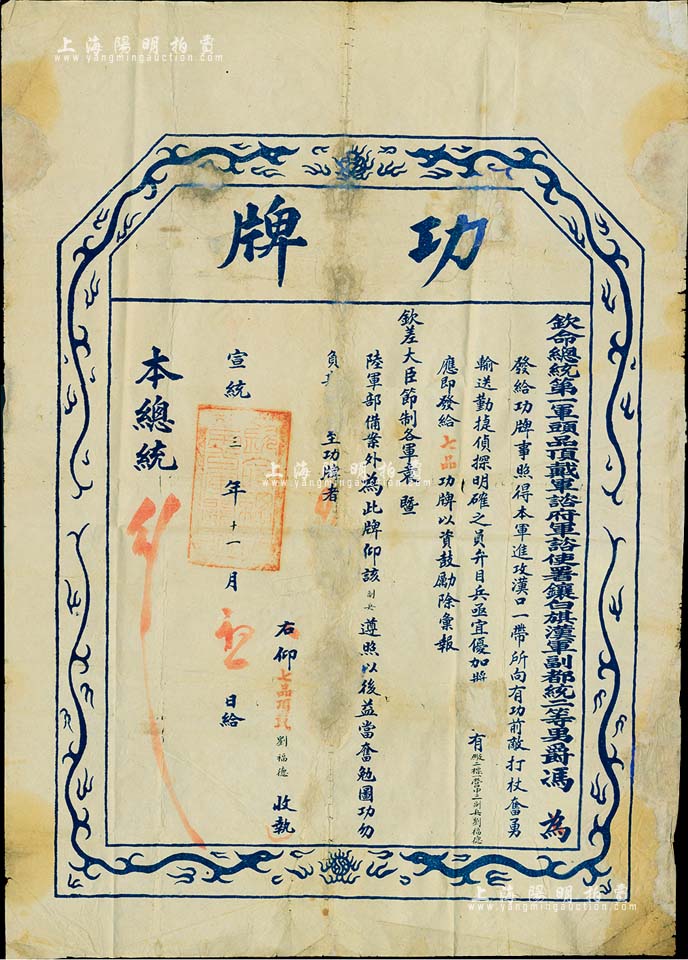 上海陽明拍賣
www.yangmingauction.com
功牌
欽命總統第一軍頭品頂戴軍諮府軍諮使署鑲白旗漢軍副都統二等男爵馮 為
發給功牌事照得本軍進攻漢口一帶所向有功前敵打仗奮勇
輸送勤捷偵探明確之員弁目兵亟宜優加獎 有
應即發給七品功牌以資鼓勵除彙報
欽差大臣節制各軍 暨
陸軍部備案外為此牌仰該副兵遵照以後益當奮勉圖功勿
負 至功牌者
右仰七品頂戴劉福德 收執
宣統三年十一月 日給
本總統
上海陽明拍賣
www.yangmingauction.com